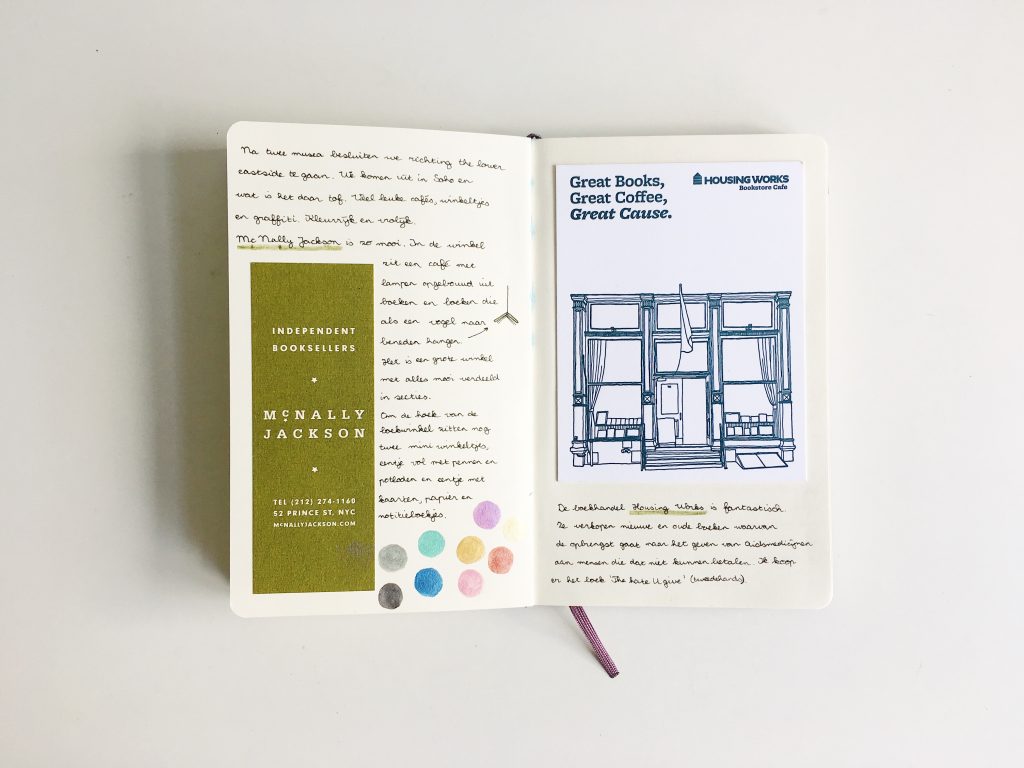 Na twee musea besluiten we richting the lower
eastside te gaan. We komen uit in Soho en
wat is het daar tof. Veel leuke cafés, winkeltjes
en graffiti. Kleurrijk en vrolijk.
McNally Jackson is zo mooi. In de winkel
zit een café met
lampen opgebouwd uit
boeken en boeken die
als een vogel naar
beneden hangen.
Het is een grote winkel
met alles mooi verdeeld
in secties.
Om de hoek van de
boekwinkel zitten nog
twee mini winkeltjes,
eentje vol met pennen en
potloden en eentje met
kaarten, papier en
notitieboekjes.
INDEPENDENT
BOOKSELLERS
McNALLY
JACKSON
TEL (212) 274-1160
52 PRINCE ST, NYC
McNALLYJACKSON.COM
Great Books,
Great Coffee,
Great Cause.
HOUSING WORKS
Bookstore Cafe
De boekhandel Housing Works is fantastisch.
Ze verkopen nieuwe en oude boeken waarvan
de opbrengst gaat naar het geven van Aidsmedicijnen
aan mensen die dat niet kunnen betalen. Ik koop
er het boek 'The hate U give' (tweedehands).